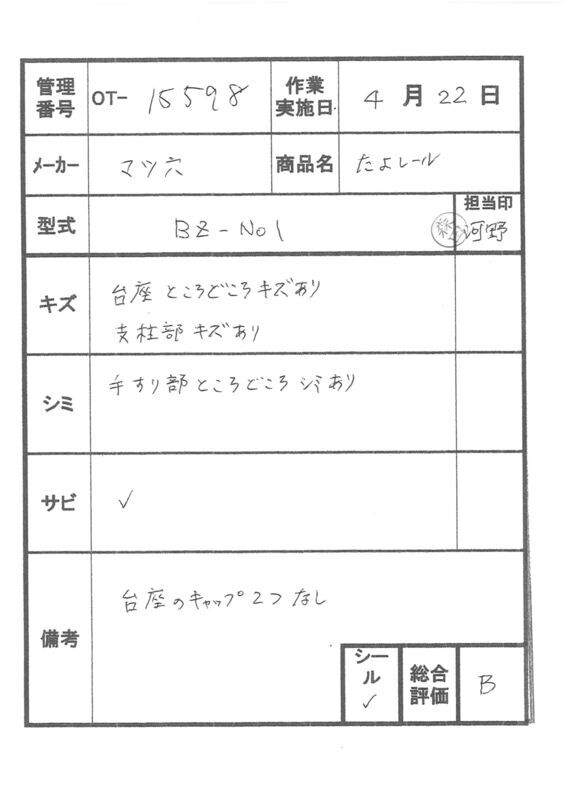 管理番号 OT- 15598 作業実施日 4月22日
メーカー マツ六 商品名 たよレール
型式 BZ-No1 担当印 河野
キズ 台座 ところどころ キズあり
支柱部 キズあり
シミ 手すり部 ところどころ シミあり
サビ ✓
備考 台座のキャップ2つなし
シール ✓ 総合評価 B